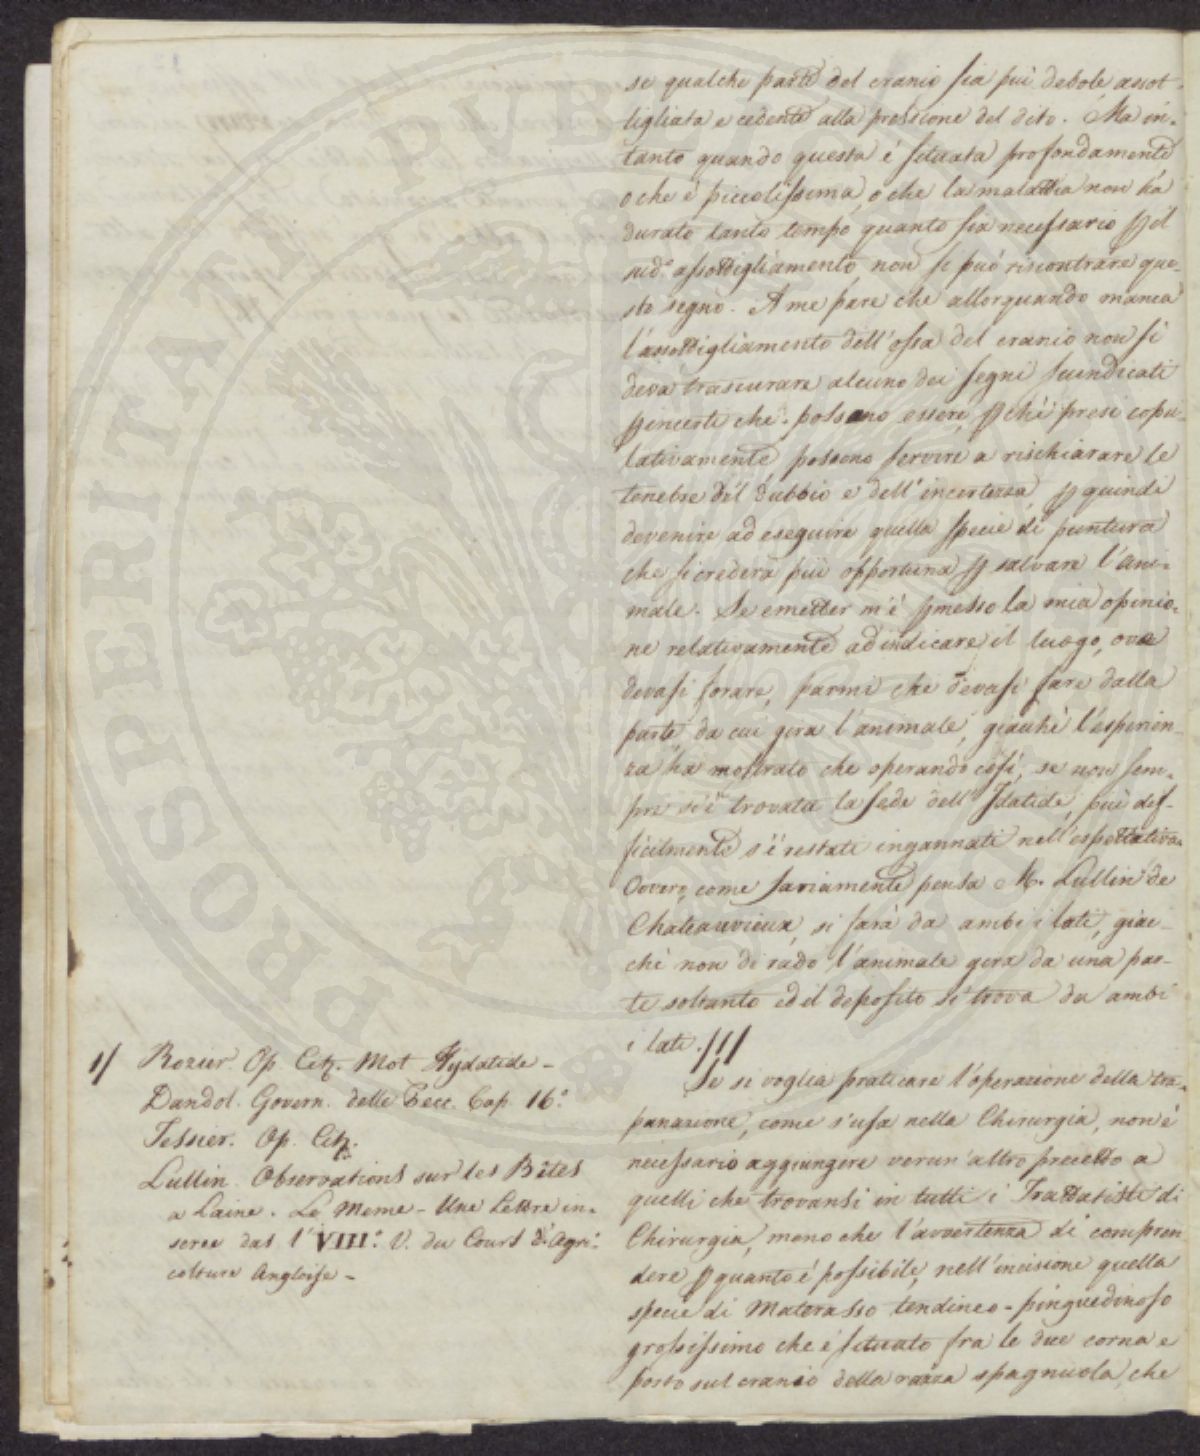 se qualche parte del cranio sia più debole, assot-
tigliata e cedente alla pressione del dito. Ma in-
tanto quando questa è situata profondamente
o che è piccolissima, o che la malattia non ha
durato tanto tempo quanto sia necessario p il
sud.º assottigliamento, non si può riscontrare que-
sto segno. A me pare che allorquando manca
l'assottigliamento dell'ossa del cranio non si
deva trascurare alcuno dei segni suindicati
p incerti che possano essere, p chè presi copu-
lativamente possono servire a rischiarare le
tenebre del dubbio e dell'incertezza p quindi
devenire ad eseguire quella specie di puntura
che si crederà più opportuna p salvare l'ani-
male. Se emetter m'è pmesso la mia opinio-
ne relativamente ad indicare il luogo, ove
devasi forare, parmi che devasi fare dalla
parte, da cui gira l'animale, giacchè l'esperien-
za ha mostrato che operando così, se non sem-
pre si è trovata la sede dell'Idatide, più dif-
ficilmente s'è restati ingannati nell'espettativa.
Ovvero, come saviamente pensa M. Lullin de
Chateauvieux, si farà da ambi i lati, giac-
chè non di rado l'animale gira da una par-
te soltanto ed il deposito si trova da ambi
i lati. /1/
Se si voglia praticare l'operazione della tra-
panazione, come s'usa nella Chirurgia, non è
necessario aggiungere verun'altro precetto a
quelli che trovansi in tutti i Trattatisti di
Chirurgia, meno che l'avvertenza di compren
dere p quanto è possibile, nell'incisione quella
specie di Materasso tendineo-pinguedinoso
grossissimo che è situato fra le due corna e
posto sul cranio della razza spagnuola, che
1/ Rozier. Op. Cit. Mot Hydatide -
Dandol. Govern. delle Pec. Cap. 16.º
Tessier. Op. Cit.
Lullin. Observations sur les Bêtes
a Laine. Le Meme - Une Lettre in-
seree das l'VIII.º V. du Cours d'Agri-
colture Angloise -
PROSPERITATI PVB